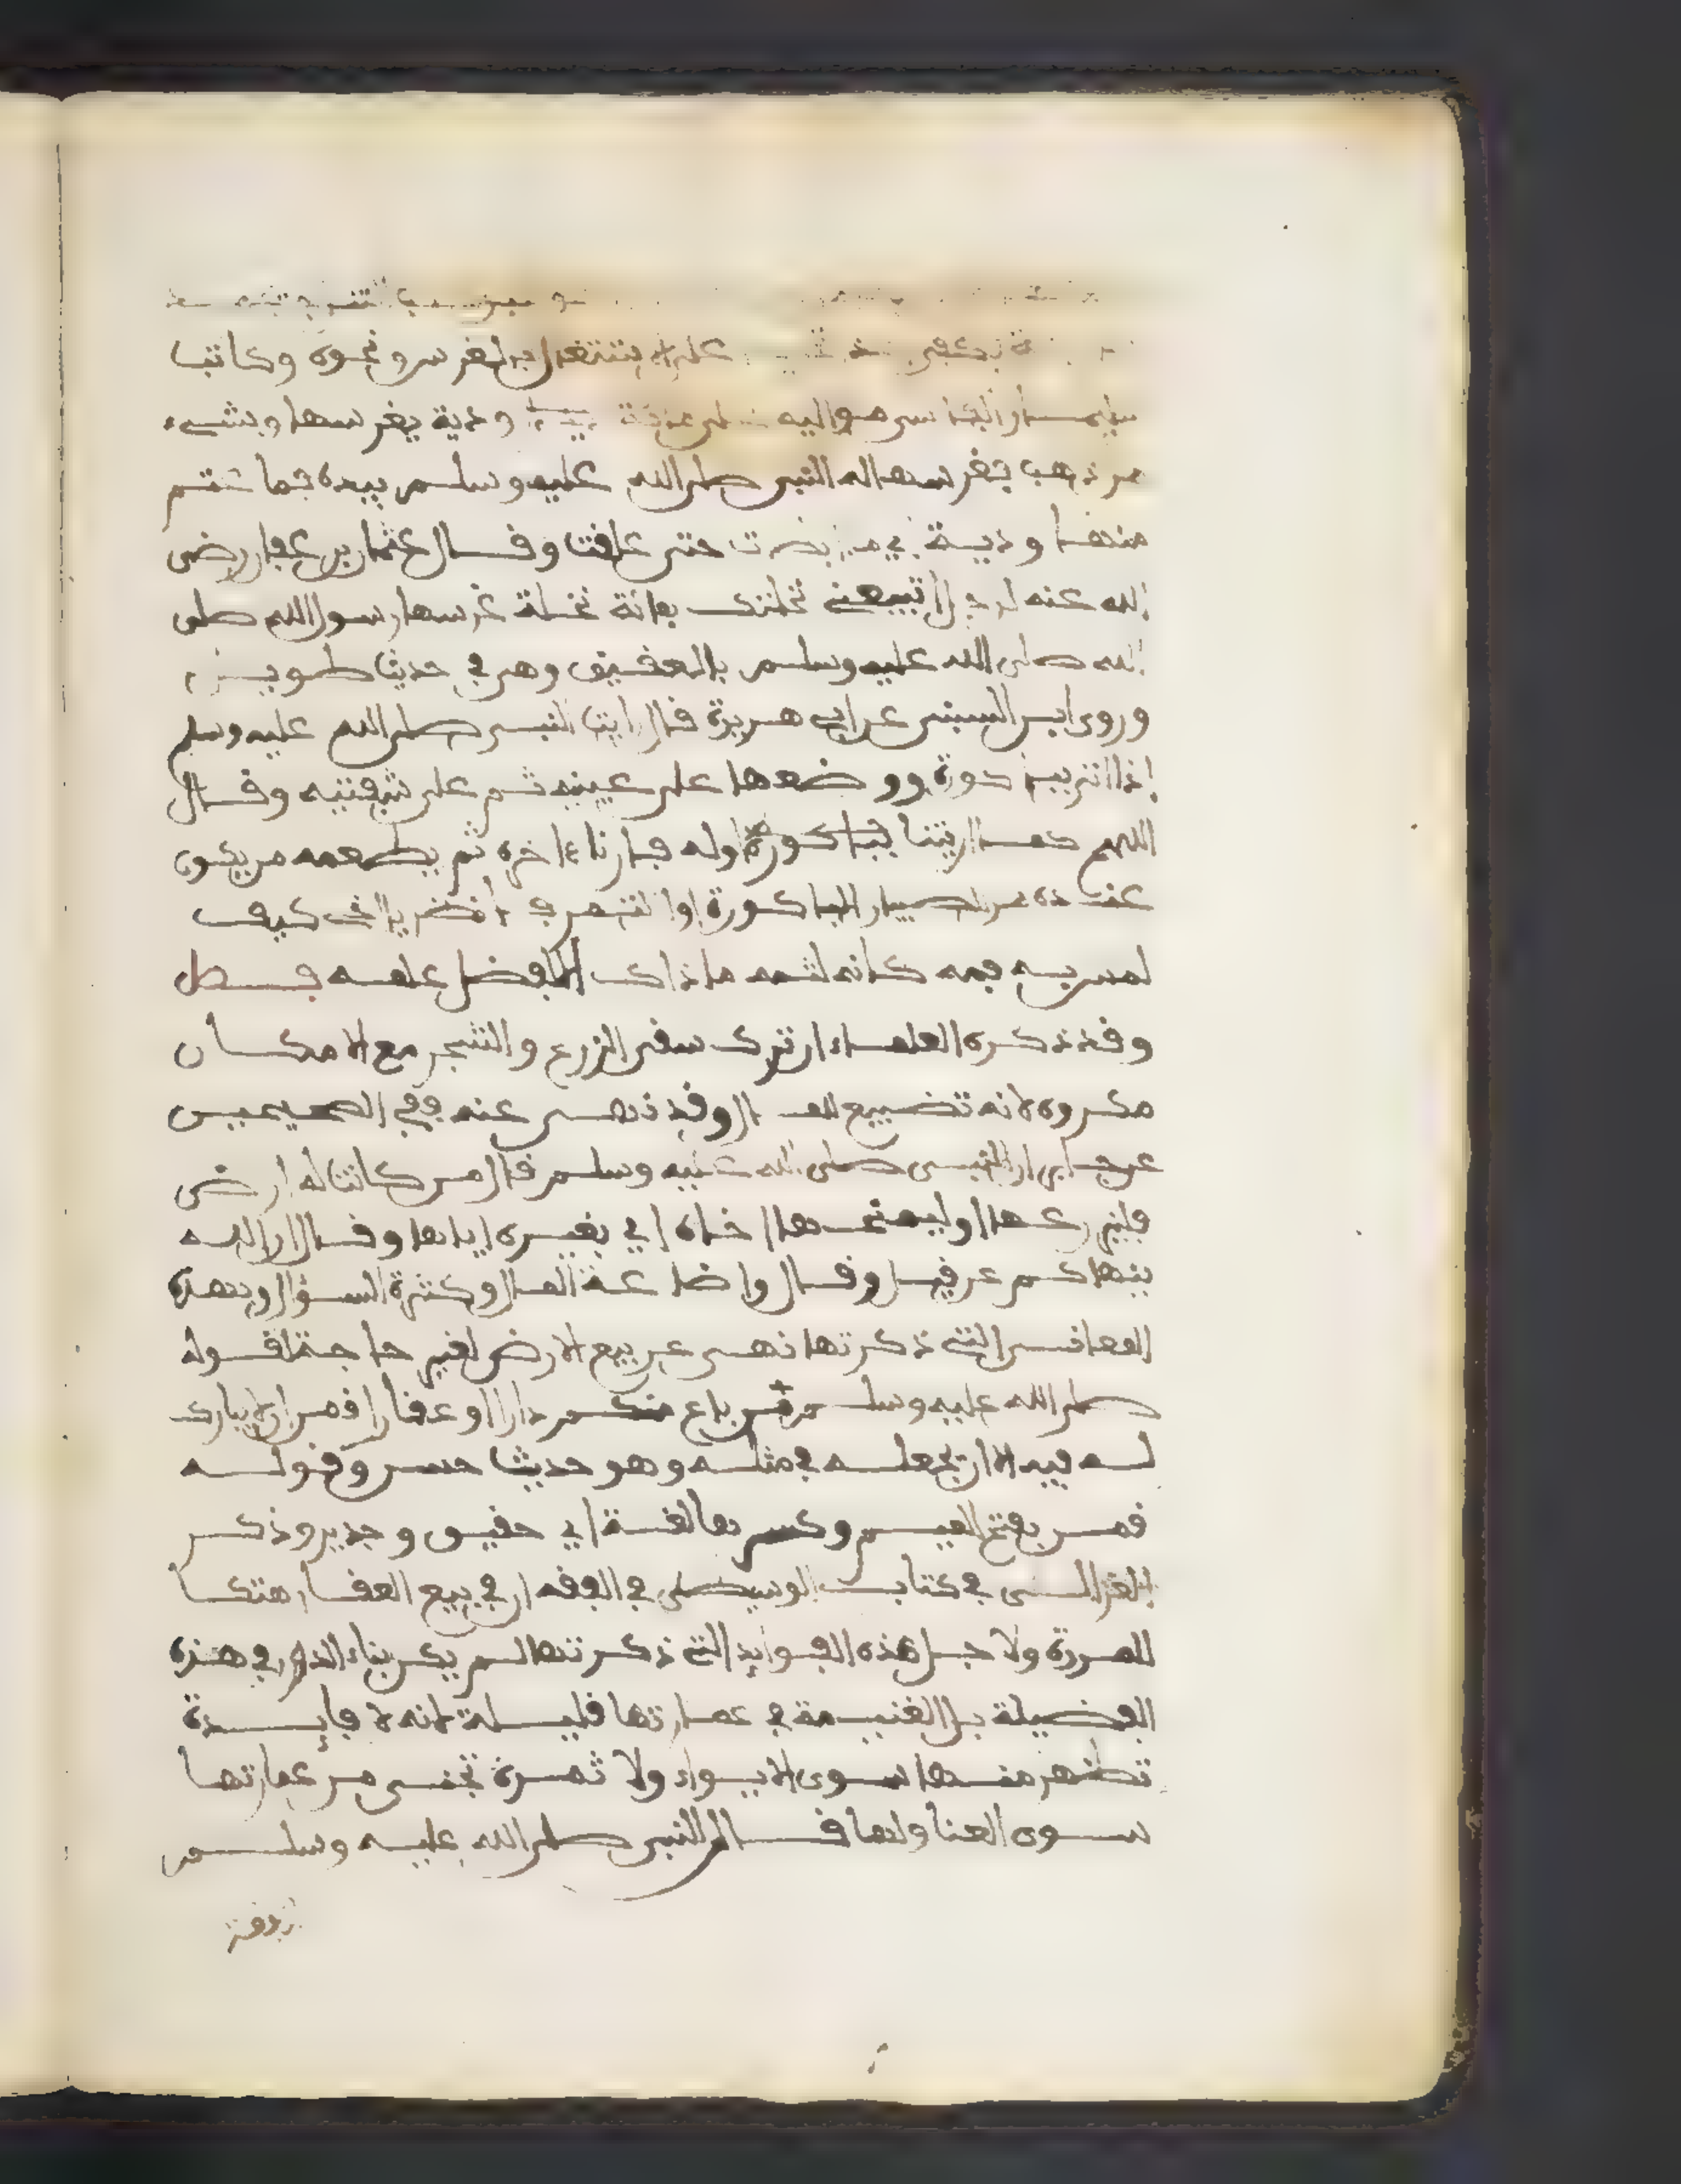 على الاشتغال بالغرس ونحوه وكاتب
سليمان الفارسي مواليه على غرس ودية يغرسها وبشيء
من ذهب فغرسها له النبي صلى الله عليه وسلم بيده فما عتم
منها ودية حتى علقت وقال عثمان بن عفان رضي
الله عنه لرجل اتبيعني نخلتك بمائة نخلة غرسها رسول الله صلى
الله صلى الله عليه وسلم بالعقيق وهي في حديث طويل
وروى ابن السني عن ابي هريرة قال رايت النبي صلى الله عليه وسلم
إذا اتي بباكورة ووضعها على عينيه ثم على شفتيه وقال
اللهم كما اريتنا بباكورة اوله فارنا ءاخره ثم يطعمه من يكون
عنده من الصبيان الباكورة اول الثمر في انظر يا اخي كيف
لمس به فمه كانه لثمه ما ذاك الا لفضل علمه فصل
وقد ذكره العلماء ان ترك سقي الزرع والشجر مع الامكان
مكروه لانه تضييع للمال وقد نهي عنه ففي الصحيحين
عن جابر ان النبي صلى الله عليه وسلم قال من كانت له ارض
فليزرعها او ليمنحها اخاه اي يغيره اياها وقال ان الله
ينهاكم عن قيل وقال واضاعة المال وكثرة السؤال وبهذه
المعاني التي ذكرتها نهي عن بيع الارض لغير حاجة لقوله
صلى الله عليه وسلم من باع منكم دارا او عقارا قمن ان لا يبارك
له فيه الا ان يجعله في مثله وهو حديث حسن وقوله
قمن بفتح الميم وكسرها لغة اي حقيق وجدير وذكر
الغزالي في كتاب الوسيط في الفقه ان في بيع العقار هتكا
للمروة ولاجل هذه الفوايد التي ذكرتها لم يكن بناء الدور في هذه
الفضيلة بل الغنيمة في عمارتها قليلة لانه لا فايدة
تظهر منها سوى الايواء ولا ثمرة تجنى من عمارتها
سوى العنا ولهذا قال النبي صلى الله عليه وسلم